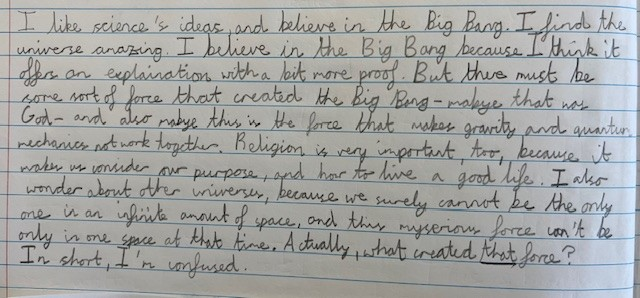 I like science's ideas, and believe in the Big Bang. I find the
universe amazing. I believe in the Big Bang because I think it
offers an explaination with a bit more proof. But there must be
some sort of force that created the Big Bang - mabye that was
God - and also mabye this is the force that makes gravity and quantum
mechanics not work together. Religion is very important, too, because it
makes us consider our purpose, and how to live a good life. I also
wonder about other universes, because we surely cannot be the only
one in an infinite amount of space, and this myserious force can't be
only in one space at that time. Actually, what created that force?
In short, I'm confused.